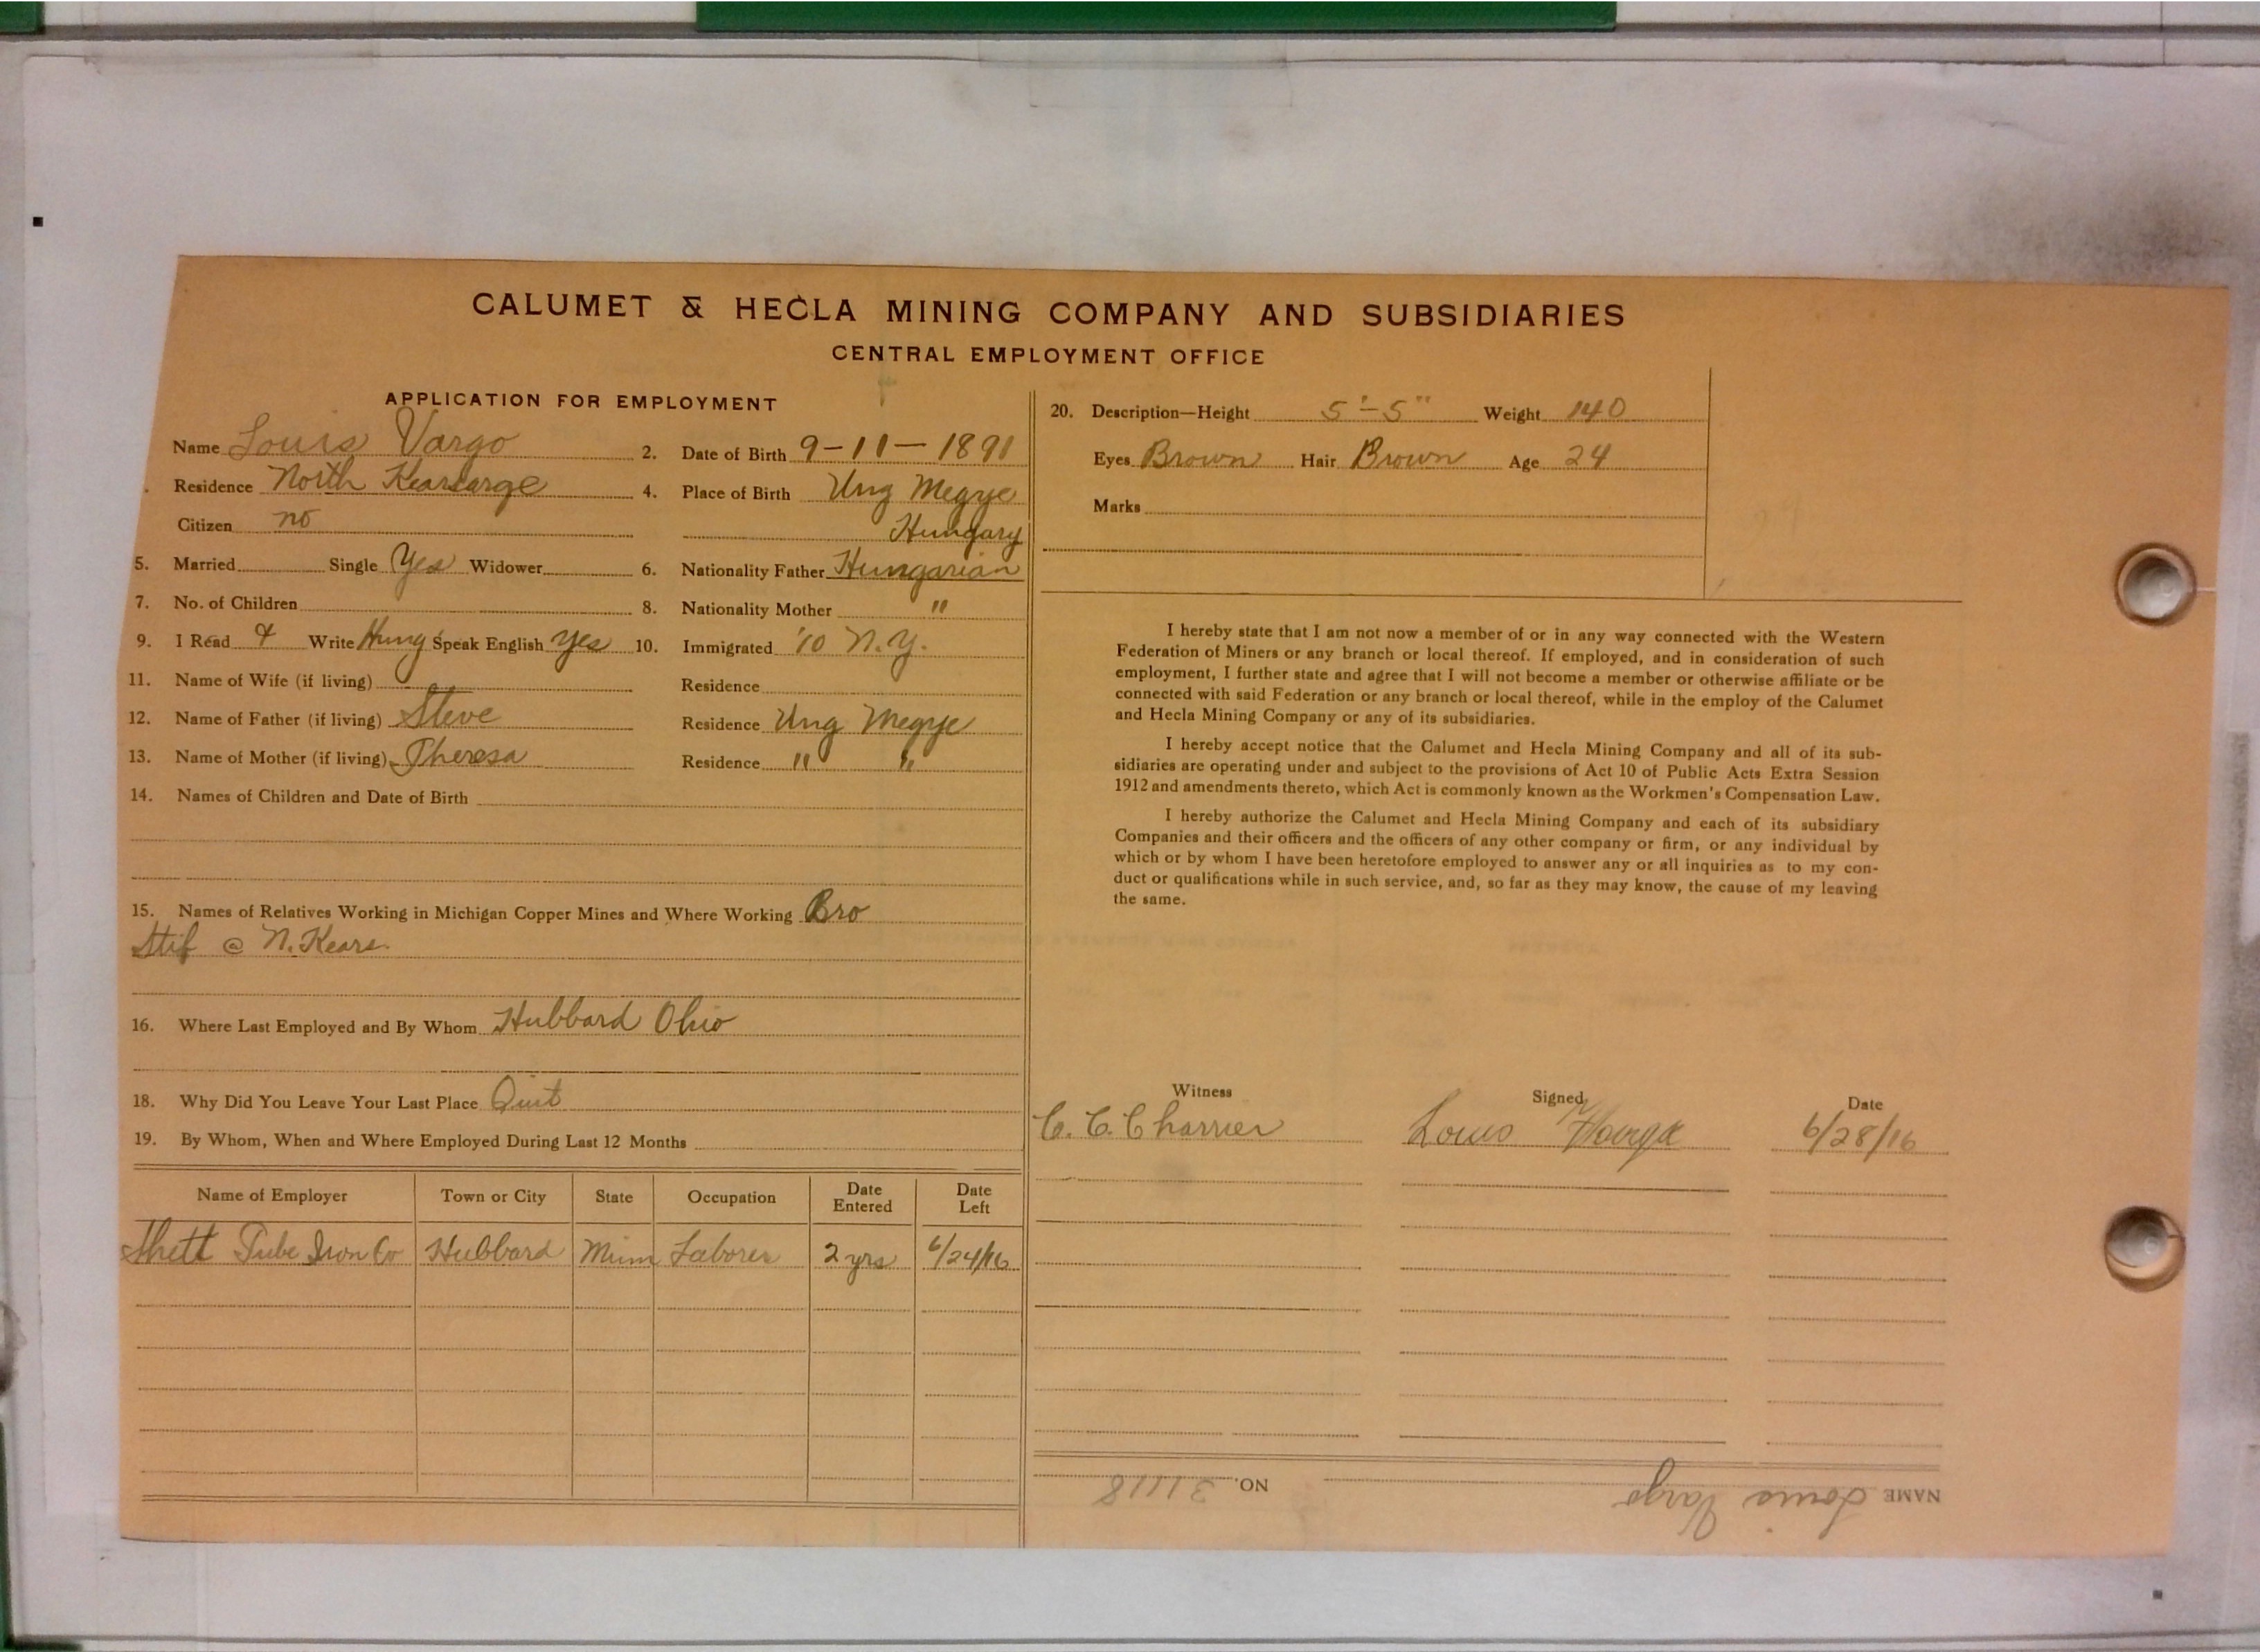 CALUMET & HECLA MINING COMPANY AND SUBSIDIARIES
CENTRAL EMPLOYMENT OFFICE
APPLICATION FOR EMPLOYMENT
Name Louis Vargo 2. Date of Birth 9-11-1891
Residence North Kearsarge 4. Place of Birth Ung Megye
Citizen no Hungary
5. Married Single Yes Widower 6. Nationality Father Hungarian
7. No. of Children 8. Nationality Mother "
9. I Read & Write Hung Speak English yes 10. Immigrated '10 N.Y.
11. Name of Wife (if living) Residence
12. Name of Father (if living) Steve Residence Ung Megye
13. Name of Mother (if living) Theresa Residence " "
14. Names of Children and Date of Birth
15. Names of Relatives Working in Michigan Copper Mines and Where Working Bro
Stif @ N. Kears.
16. Where Last Employed and By Whom Hubbard Ohio
18. Why Did You Leave Your Last Place Quit
19. By Whom, When and Where Employed During Last 12 Months
Name of Employer Town or City State Occupation Date Entered Date Left
Tube Iron Co Hubbard Laborer 2 yrs 6/24/16
20. Description—Height 5'-5" Weight 140
Eyes Brown Hair Brown Age 24
Marks
I hereby state that I am not now a member of or in any way connected with the Western
Federation of Miners or any branch or local thereof. If employed, and in consideration of such
employment, I further state and agree that I will not become a member or otherwise affiliate or be
connected with said Federation or any branch or local thereof, while in the employ of the Calumet
and Hecla Mining Company or any of its subsidiaries.
I hereby accept notice that the Calumet and Hecla Mining Company and all of its sub-
sidiaries are operating under and subject to the provisions of Act 10 of Public Acts Extra Session
1912 and amendments thereto, which Act is commonly known as the Workmen's Compensation Law.
I hereby authorize the Calumet and Hecla Mining Company and each of its subsidiary
Companies and their officers and the officers of any other company or firm, or any individual by
which or by whom I have been heretofore employed to answer any or all inquiries as to my con-
duct or qualifications while in such service, and, so far as they may know, the cause of my leaving
the same.
Witness Signed Date
C. C. Charrier Louis 6/28/16
NAME Louis Vargo NO. 31118